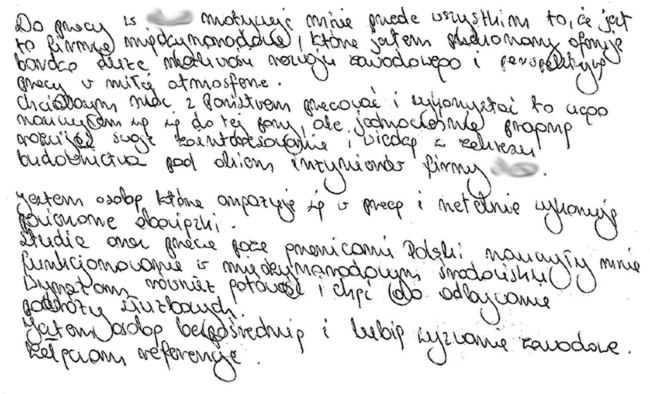 Do pracy w motywuje mnie przede wszystkim to, że jest
to firma międzynarodowa, która jestem przekonany oferuje
bardzo duże możliwości rozwoju zawodowego i perspektywy
pracy w miłej atmosferze.
Chciałbym móc z Państwem pracować i wykorzystać to czego
nauczyłem się do tej pory, ale jednocześnie pragnę
rozwijać swoje zainteresowania i wiedzę z zakresu
budownictwa pod okiem inżynierów firmy
Jestem osobą która angażuje się w pracę i rzetelnie wykonuje
powierzone obowiązki.
Studia oraz praca poza granicami Polski nauczyły mnie
funkcjonowania w międzynarodowym środowisku.
Wyrażam również gotowość i chęć do odbywania
podróży służbowych.
Jestem osobą bezpośrednią i lubię wyzwania zawodowe.
Załączam referencje.